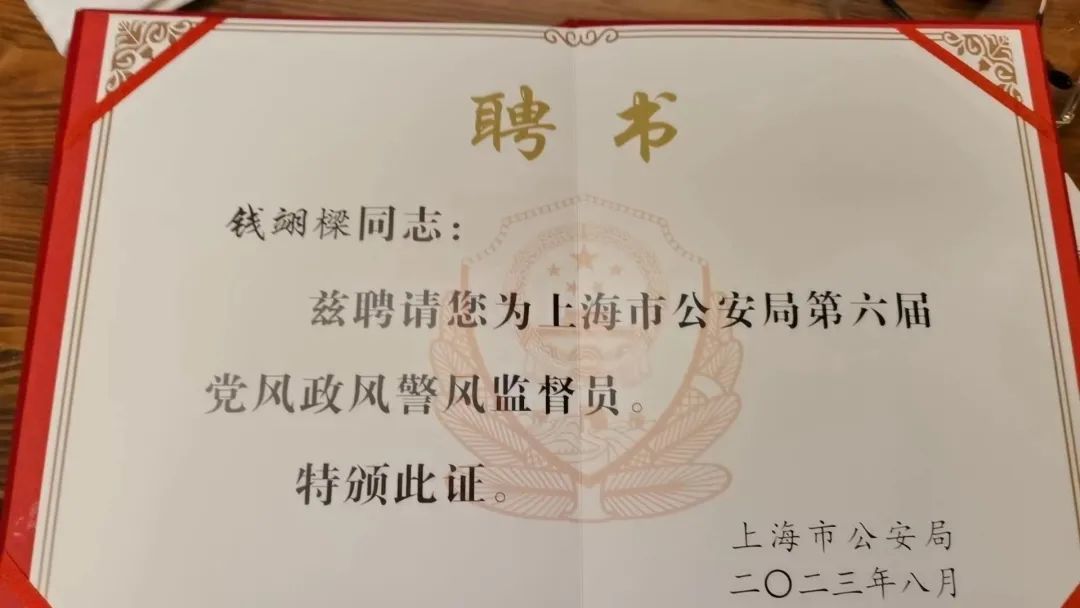 聘书
钱翊樑同志：
兹聘请您为上海市公安局第六届
党风政风警风监督员。
特颁此证。
上海市公安局
二〇二三年八月